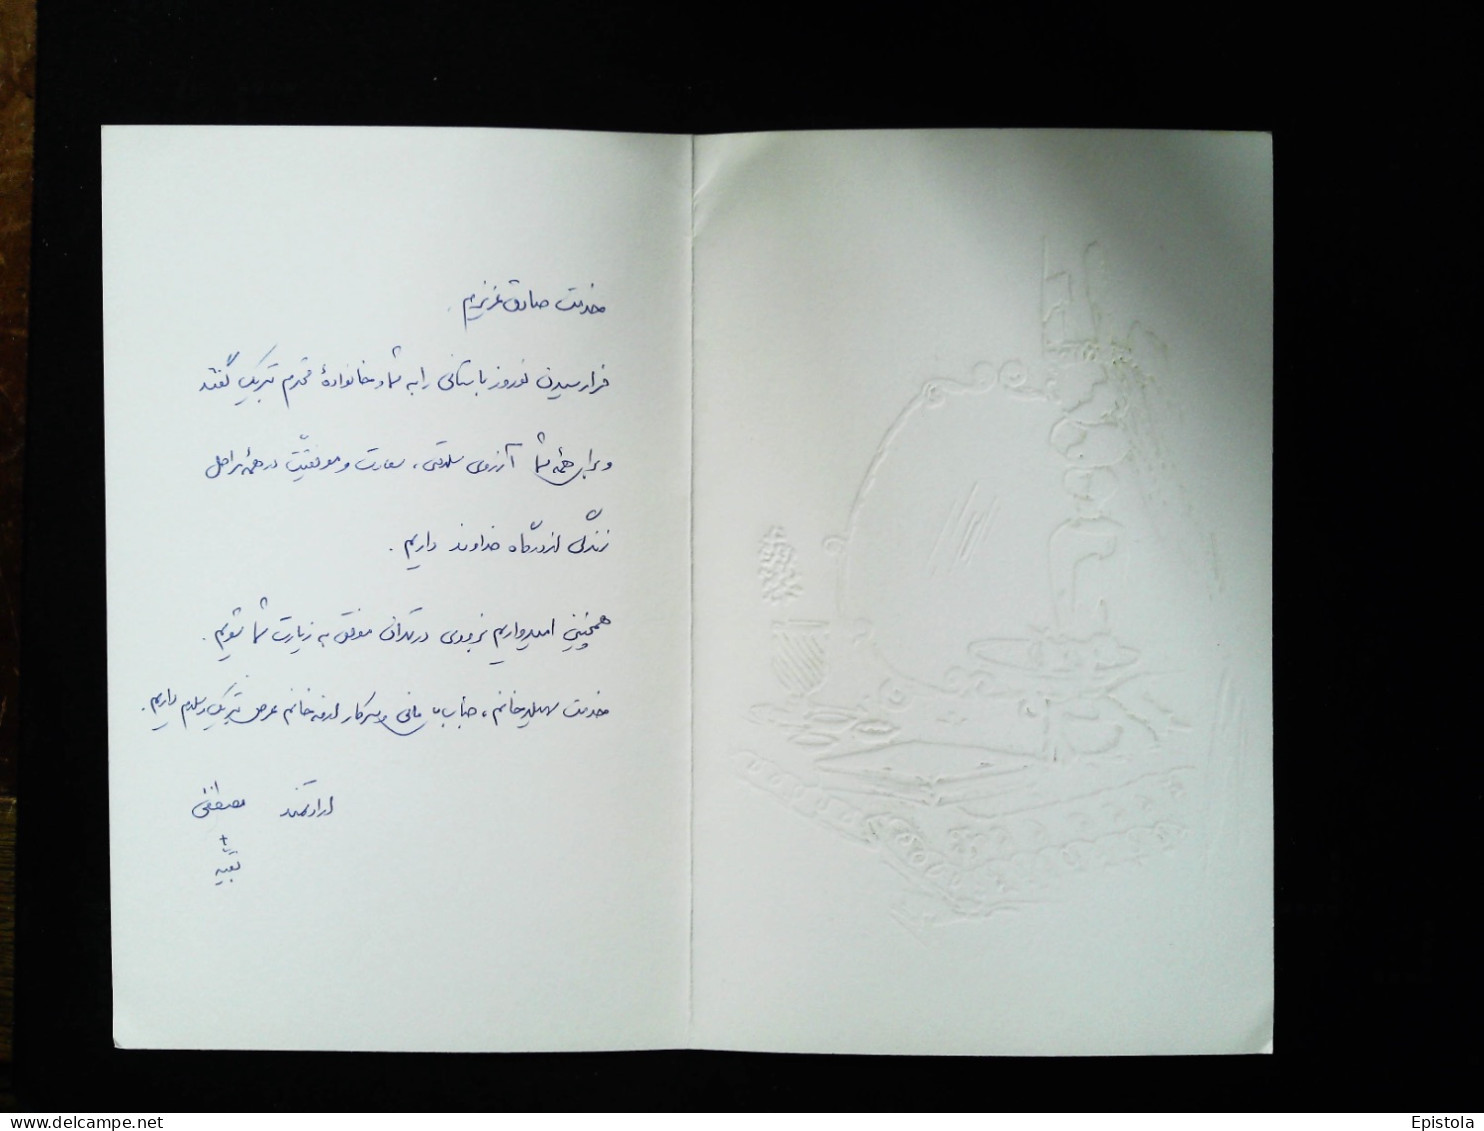 خدمت صادق عزیزم .
فرارسیدن نوروز باستانی را به شما و خانوادهٔ محترم تبریک گفته
و برای همهٔ شما آرزوی سلامتی ، سعادت و موفقیّت در همهٔ مراحل
زندگی از درگاه خداوند داریم .
همچنین امیدواریم بزودی در تهران موفق به زیارت شما شویم .
خدمت سهیلا خانم ، جناب مانی و سرکار خانم عرض تبریک و سلام داریم .
ارادتمند مصطفی
+
delcampe.net
Epistola